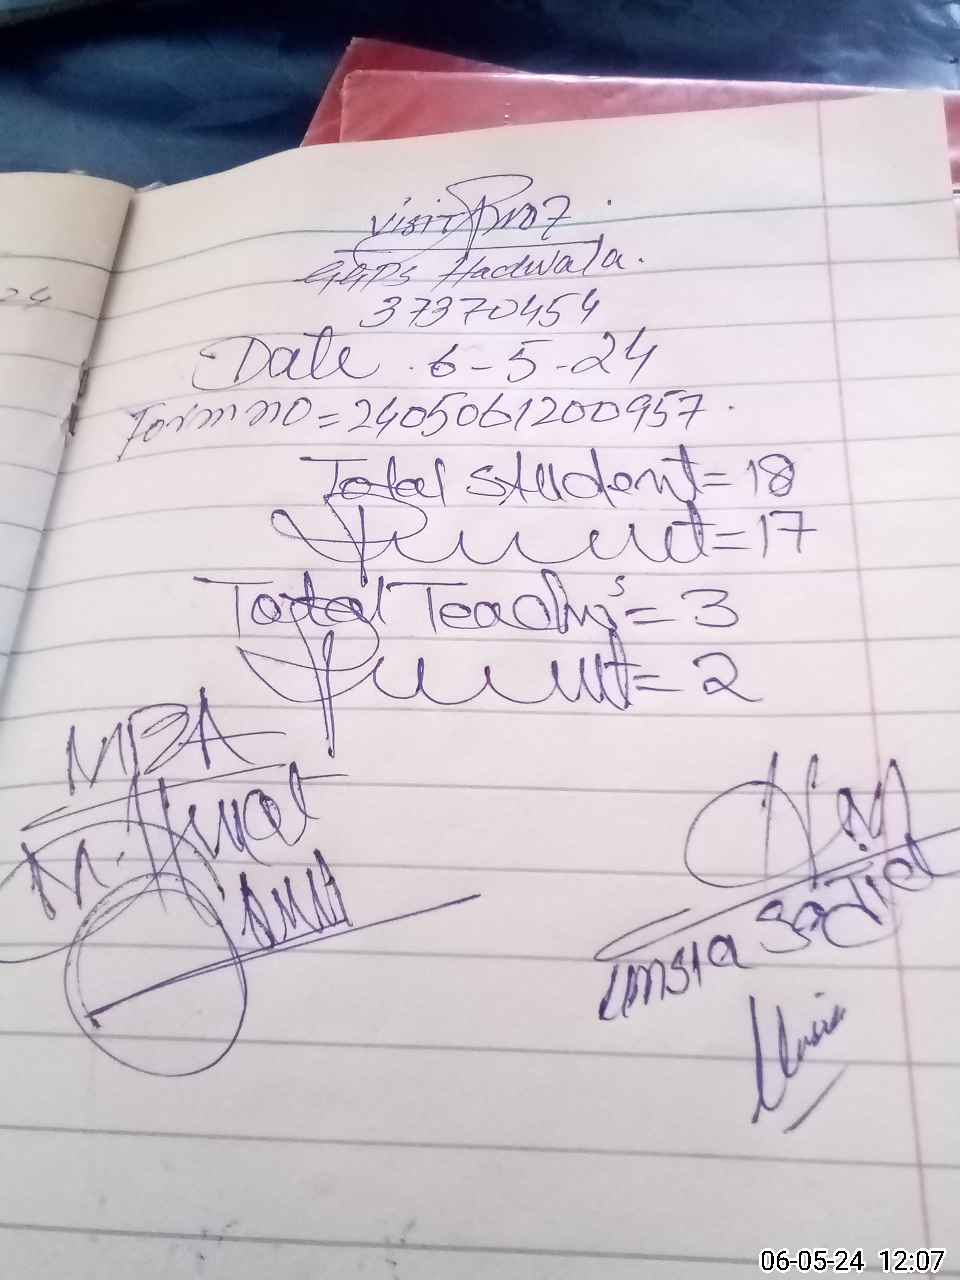 24
Visit Prof
GGPS Hadwala.
37370454
Date 6-5-24
Form no = 2405061200957
Total student = 18
Present = 17
Total Teacher's = 3
Present = 2
MBA
M.
H.M
Unsia
06-05-24 12:07